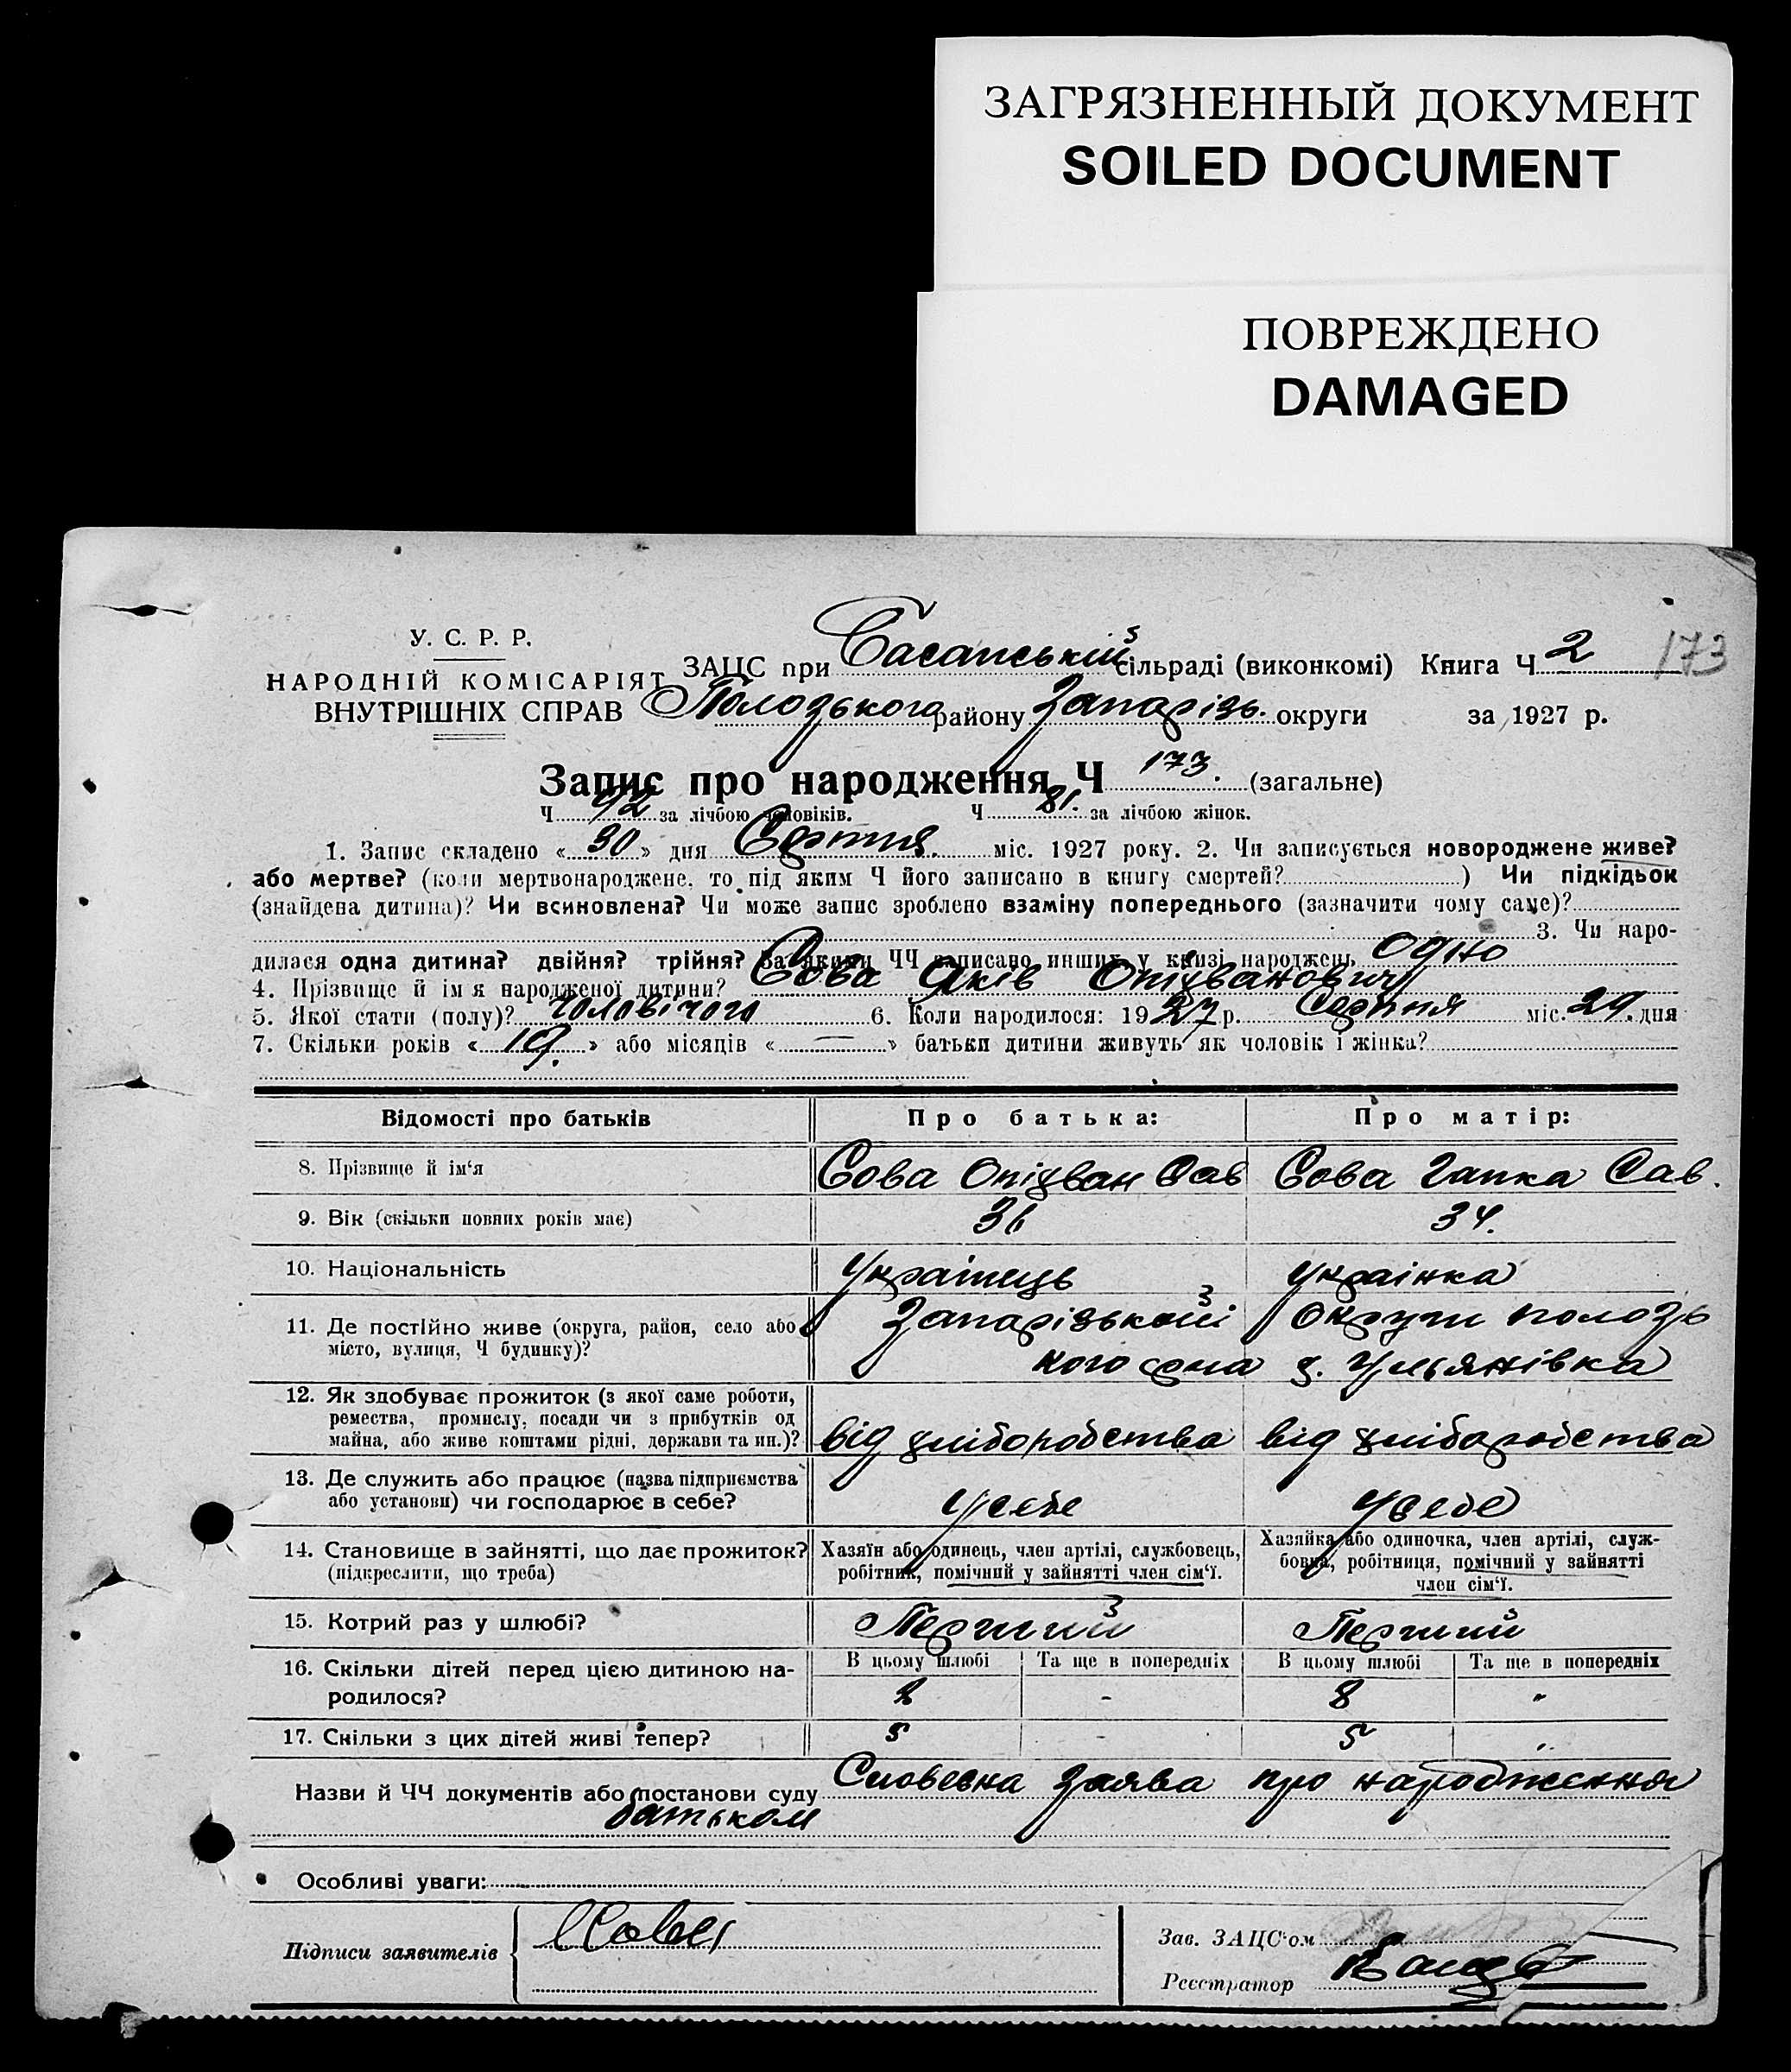 ЗАГРЯЗНЕННЫЙ ДОКУМЕНТ
SOILED DOCUMENT
ПОВРЕЖДЕНО
DAMAGED
У. С. Р. Р.
НАРОДНІЙ КОМІСАРІЯТ
ВНУТРІШНІХ СПРАВ
ЗАЦС при сільраді (виконкомі) Книга Ч 2 173
Полозького району Запарізь. округи за 1927 р.
Запис про народження Ч 173. (загальне)
Ч 92 за лічбою чоловіків. Ч 81. за лічбою жінок.
1. Запис складено « 30 » дня Серпня. міс. 1927 року. 2. Чи записується новороджене живе?
або мертве? (коли мертвонароджене, то під яким Ч його записано в книгу смертей? ) Чи підкідьок
(знайдена дитина)? Чи всиновлена? Чи може запис зроблено взаміну попереднього (зазначити чому саме)?
3. Чи наро-
дилася одна дитина? двійня? трійня? За якими ЧЧ записано инших у книзі народжень Одно
4. Прізвище й ім я народженої дитини? Сова Яків
5. Якої стати (полу)? Чоловічого 6. Коли народилося: 1927 р. Серпня міс. 29. дня
7. Скільки років « 19. » або місяців « — » батьки дитини живуть як чоловік і жінка?
Відомості про батьків Про батька: Про матір:
8. Прізвище й ім‘я Сова Сав Сова Гапка Сав.
9. Вік (скільки повних років має) 36 34.
10. Національність Українець Українка
11. Де постійно живе (округа, район, село або Запарізької Округи Полозь
місто, вулиця, Ч будинку)? кого рна х. Ульянівка
12. Як здобуває прожиток (з якої саме роботи,
ремества, промислу, посади чи з прибутків од
майна, або живе коштами рідні, держави та ин.)? від хліборобства від хліборобства
13. Де служить або працює (назва підприємства
або установи) чи господарює в себе? У себе У себе
14. Становище в зайнятті, що дає прожиток? Хазяїн або одинець, член артілі, службовець, Хазяйка або одиночка, член артілі, служ-
(підкреслити, що треба) робітник, помічний у зайнятті член сім‘ї. бовка, робітниця, помічний у зайнятті
член сім‘ї.
15. Котрий раз у шлюбі? Перший Перший
16. Скільки дітей перед цією дитиною на- В цьому шлюбі Та ще в попередніх В цьому шлюбі Та ще в попередніх
родилося? 8 - 8 "
17. Скільки з цих дітей живі тепер? 5 - 5 "
Назви й ЧЧ документів або постанови суду Словесна заява про народження
батьком
Особливі уваги:
Підписи заявителів Сова
Зав. ЗАЦС‘ом
Реєстратор